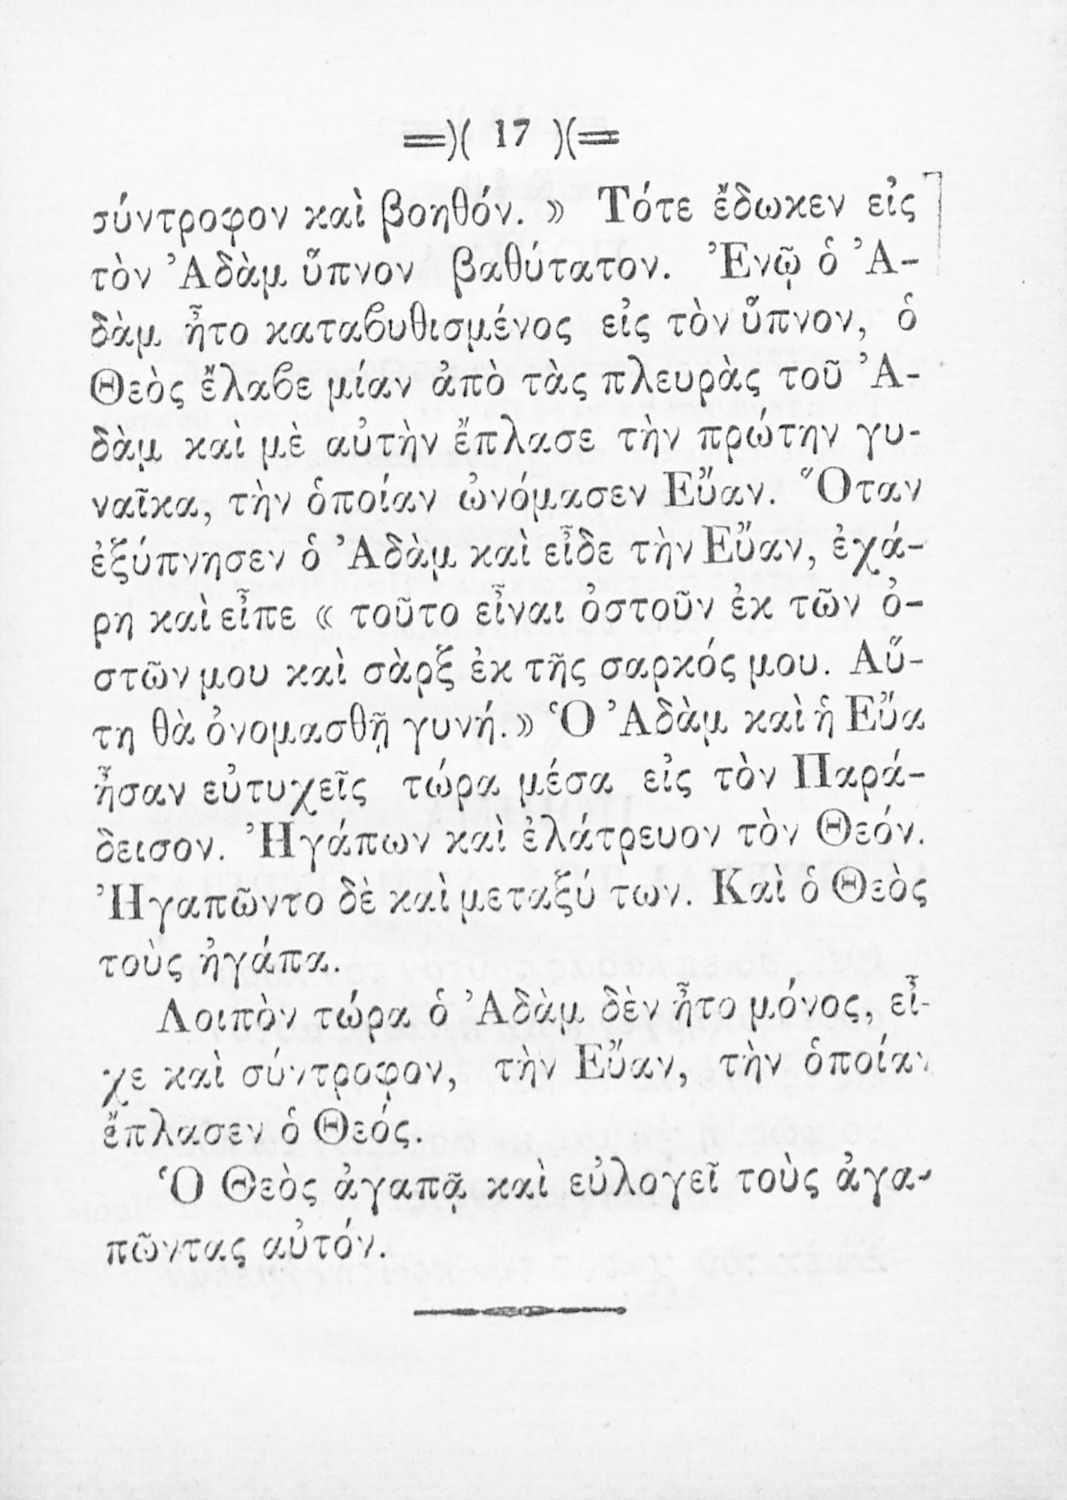 =)( 17 )(=
σύντροφον καὶ βοηθόν. » Τότε ἔδωκεν εἰς
τὸν Ἀδὰμ ὕπνον βαθύτατον. Ἐνῷ ὁ Ἀ-
δὰμ ἦτο καταϐυθισμένος εἰς τὸν ὕπνον, ὁ
Θεὸς ἔλαϐε μίαν ἀπὸ τὰς πλευρὰς τοῦ Ἀ-
δὰμ καὶ μὲ αὐτὴν ἔπλασε τὴν πρώτην γυ-
ναῖκα, τὴν ὁποίαν ὠνόμασεν Εὔαν. Ὅταν
ἐξύπνησεν ὁ Ἀδὰμ καὶ εἶδε τὴν Εὔαν, ἐχά-
ρη καὶ εἶπε « τοῦτο εἶναι ὀστοῦν ἐκ τῶν ὀ-
στῶν μου καὶ σὰρξ ἐκ τῆς σαρκός μου. Αὕ-
τη θὰ ὀνομασθῇ γυνή.» Ὁ Ἀδὰμ καὶ ἡ Εὔα
ἦσαν εὐτυχεῖς τώρα μέσα εἰς τὸν Παρά-
δεισον. Ἠγάπων καὶ ἐλάτρευον τὸν Θεόν.
Ἠγαπῶντο δὲ καὶ μεταξύ των. Καὶ ὁ Θεὸς
τοὺς ἠγάπα.
Λοιπὸν τώρα ὁ Ἀδὰμ δὲν ἦτο μόνος, εἶ-
χε καὶ σύντροφον, τὴν Εὔαν, τὴν ὁποίαν
ἔπλασεν ὁ Θεός.
Ὁ Θεὸς ἀγαπᾷ καὶ εὐλογεῖ τοὺς ἀγα-
πῶντας αὐτόν.